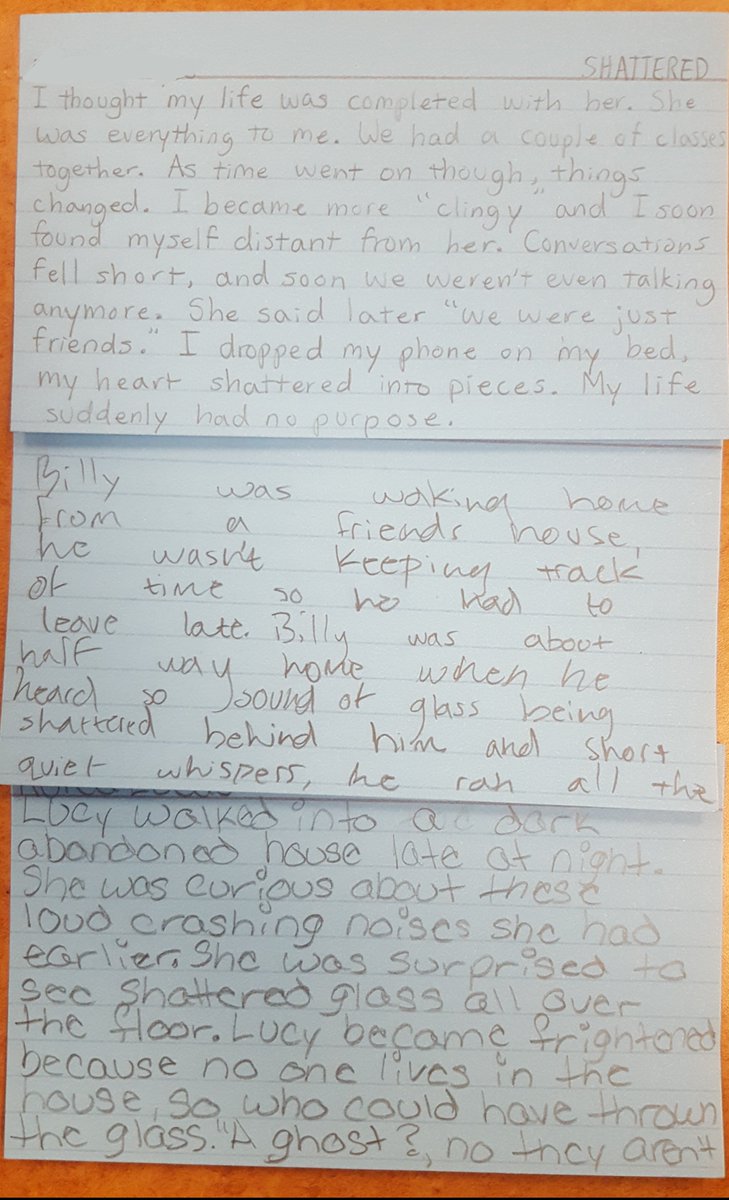 SHATTERED
I thought my life was completed with her. She
was everything to me. We had a couple of classes
together. As time went on though, things
changed. I became more "clingy" and I soon
found myself distant from her. Conversations
fell short, and soon we weren't even talking
anymore. She said later "we were just
friends." I dropped my phone on my bed,
my heart shattered into pieces. My life
suddenly had no purpose.
Billy was waking home
From a friends house,
he wasn't keeping track
of time so he had to
leave late. Billy was about
half way home when he
heard so sound of glass being
shattered behind him and short
quiet whispers, he ran all the
Lucy walked into a dark
abandoned house late at night.
She was curious about these
loud crashing noises she had
earlier. She was surprised to
see shattered glass all over
the floor. Lucy became frightened
because no one lives in the
house, so who could have thrown
the glass. "A ghost?, no they aren't